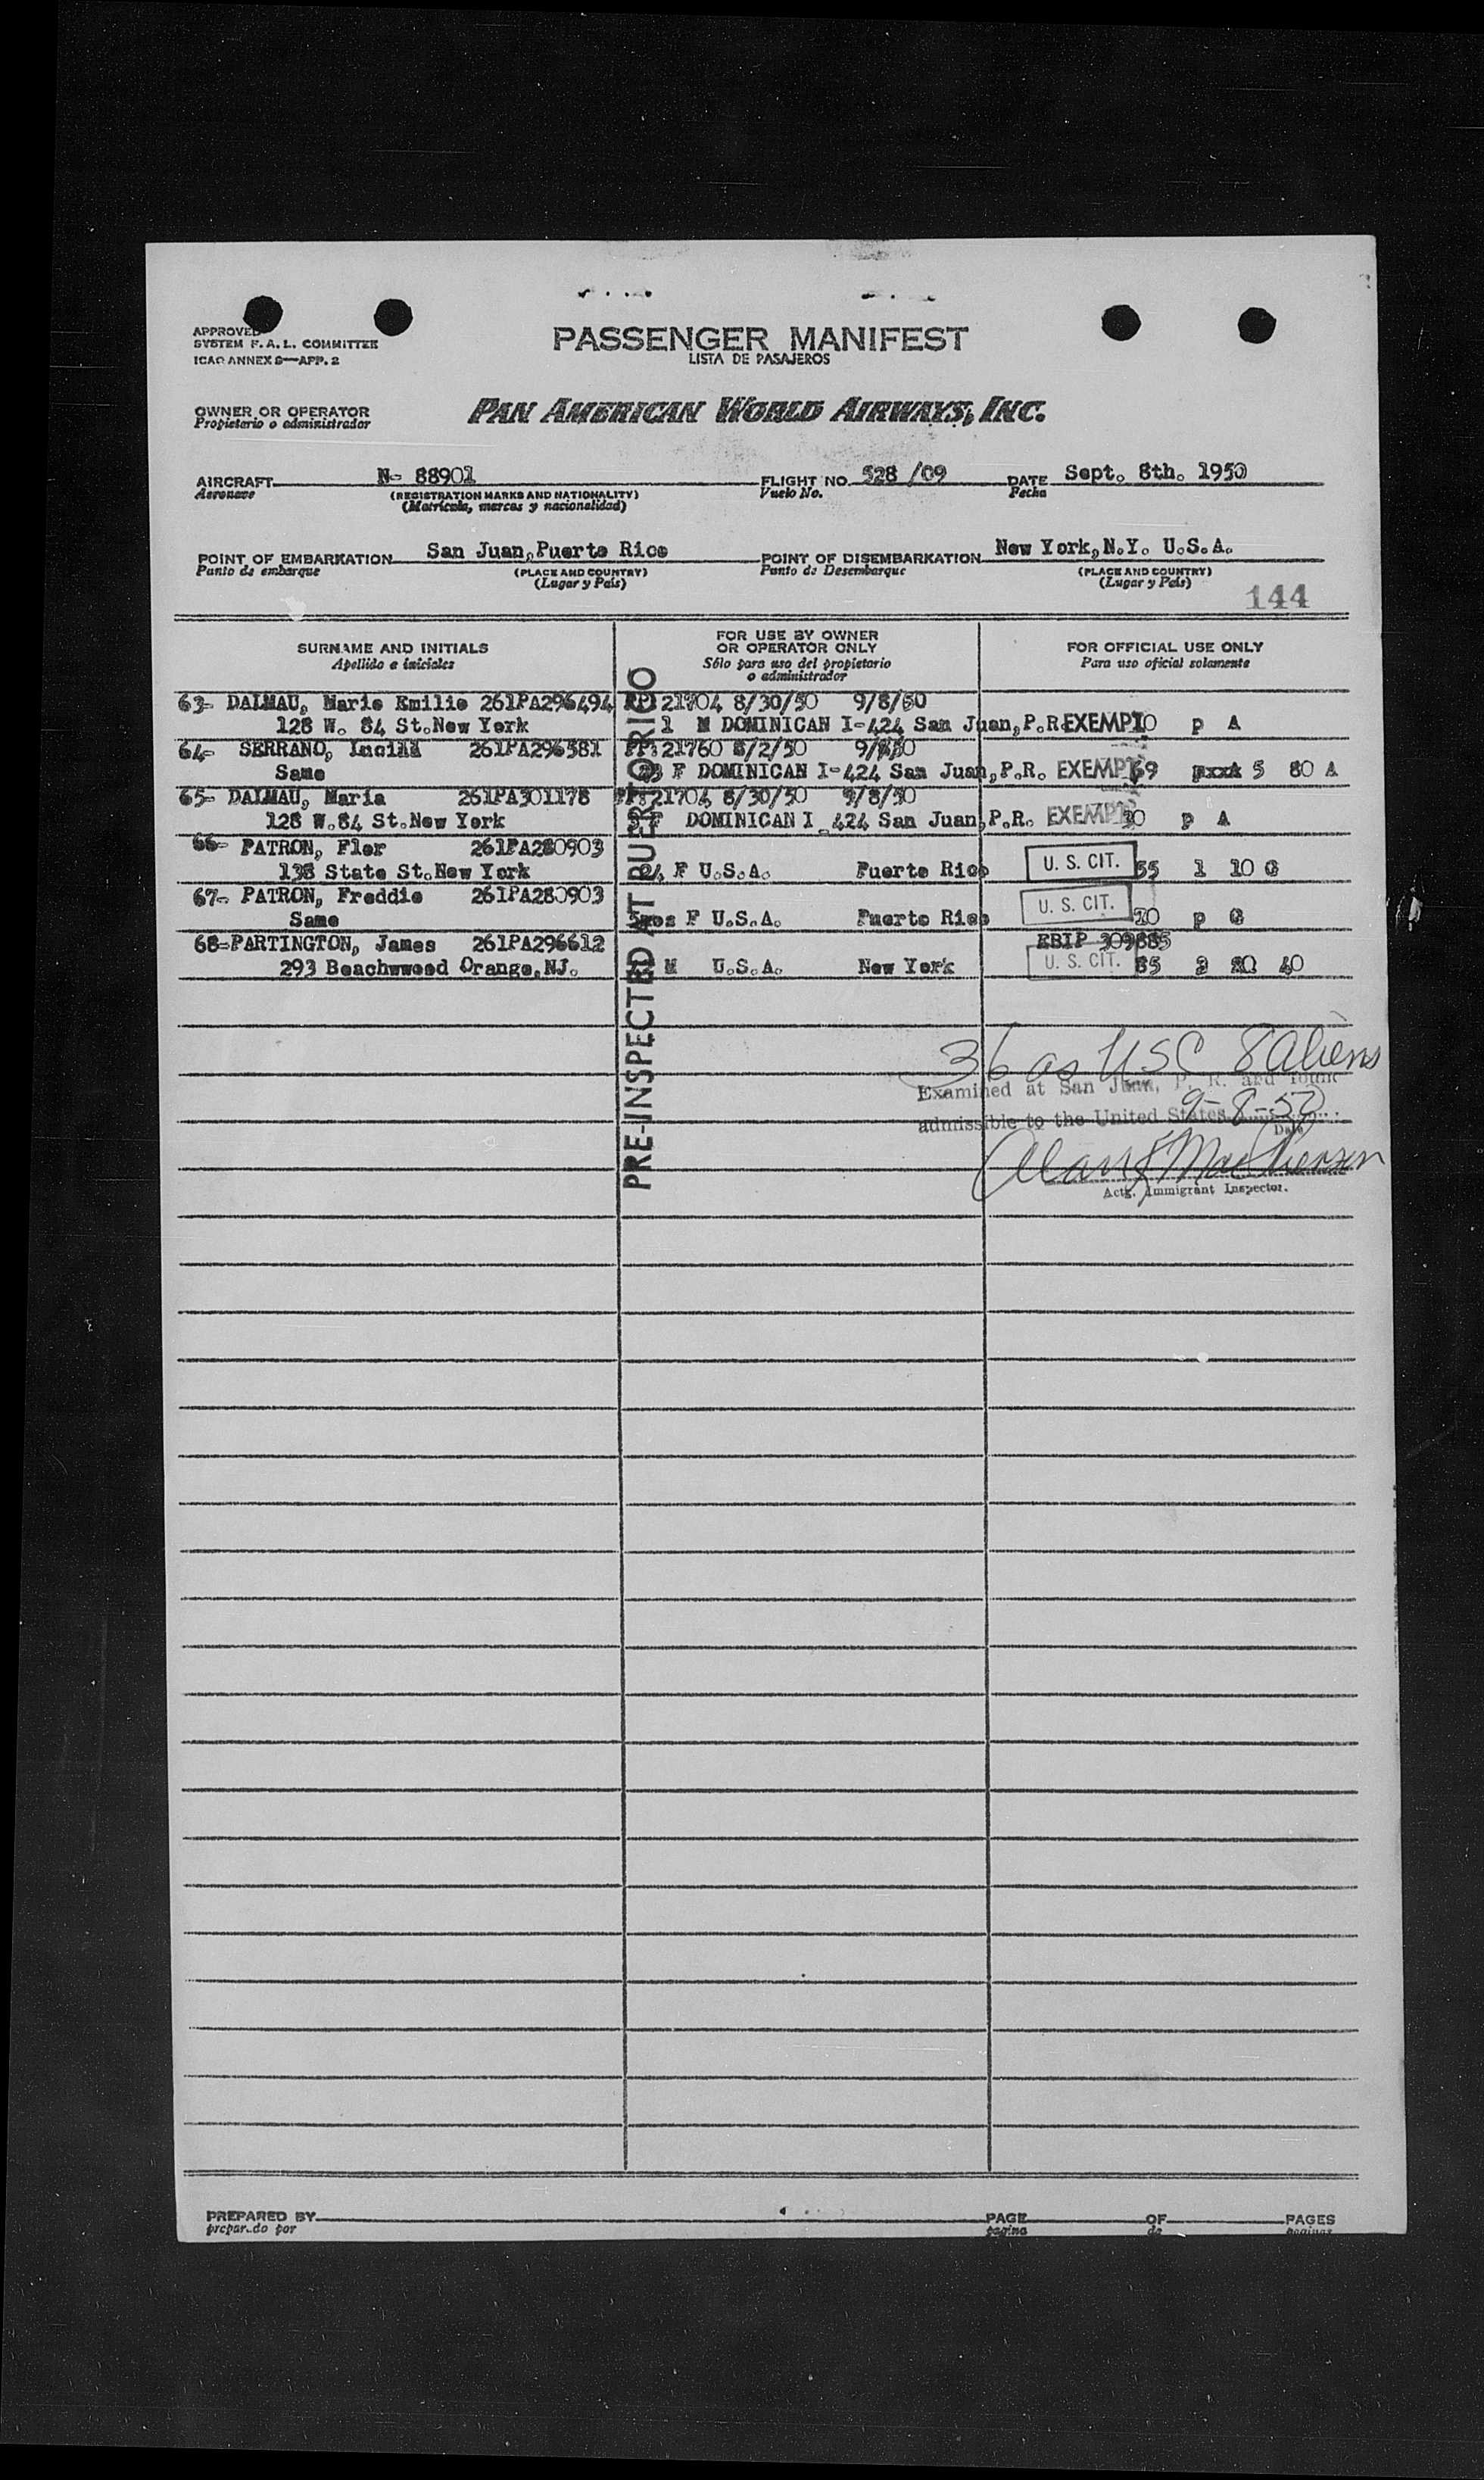 APPROVED
SYSTEM F. A. L. COMMITTEE
ICAO ANNEX 9—APP. 2
PASSENGER MANIFEST
LISTA DE PASAJEROS
OWNER OR OPERATOR
Propietario o administrador
PAN AMERICAN WORLD AIRWAYS, INC.
AIRCRAFT N- 88901 FLIGHT NO. 528 /09 DATE Sept. 8th. 1950
Aeronave (REGISTRATION MARKS AND NATIONALITY) Vuelo No. Fecha
(Matrícula, marcas y nacionalidad)
POINT OF EMBARKATION San Juan,Puerto Rico POINT OF DISEMBARKATION New York,N.Y. U.S.A.
Punto de embarque (PLACE AND COUNTRY) Punto de Desembarque (PLACE AND COUNTRY)
(Lugar y País) (Lugar y País)
144
SURNAME AND INITIALS
Apellido e iniciales
FOR USE BY OWNER
OR OPERATOR ONLY
Sólo para uso del propietario
o administrador
FOR OFFICIAL USE ONLY
Para uso oficial solamente
PRE-INSPECTED AT PUERTO RICO
63- DALMAU, Mario Emilio 261PA296494 PP: 21704 8/30/50 9/8/50
128 W. 84 St.New York 1 M DOMINICAN I-424 San Juan,P.R. EXEMPT p A
64- SERRANO, 261PA296581 PP: 21760 8/2/50
Same F DOMINICAN I-424 San Juan,P.R. EXEMPT 69 5 80 A
65- DALMAU, Maria 261PA301178 PP: 21704 8/30/50 9/8/50
128 W.84 St.New York F DOMINICAN I 424 San Juan,P.R. EXEMPT p A
66- PATRON, Flor 261PA280903
138 State St.New York 24 F U.S.A. Puerto Rico U. S. CIT. 55 1 10 G
67- PATRON, Freddie 261PA280903
Same F U.S.A. Puerto Rico U. S. CIT. 20 p G
68-PARTINGTON, James 261PA296612
293 Beachwwood Orange,NJ. M U.S.A. New York U. S. CIT. 40
36 as USC 8 aliens
Examined at San Juan, P. R. and found
admissible to the United States 9-8-50
Date
Actg. Immigrant Inspector.
PREPARED BY PAGE OF PAGES
preparado por pagina de paginas